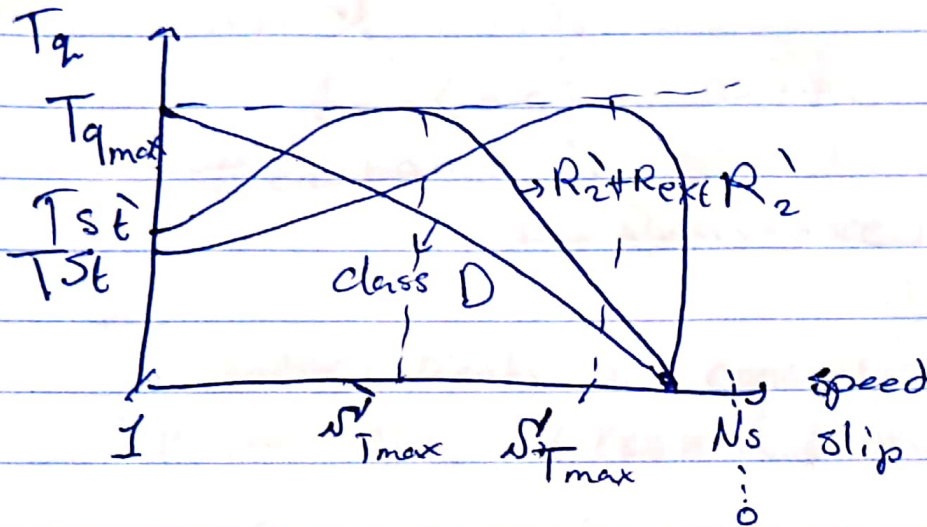 Tq
Tqmax
Tst'
Tst
R2'+Rext R2'
class D
speed
1 S'Tmax STmax Ns slip
0